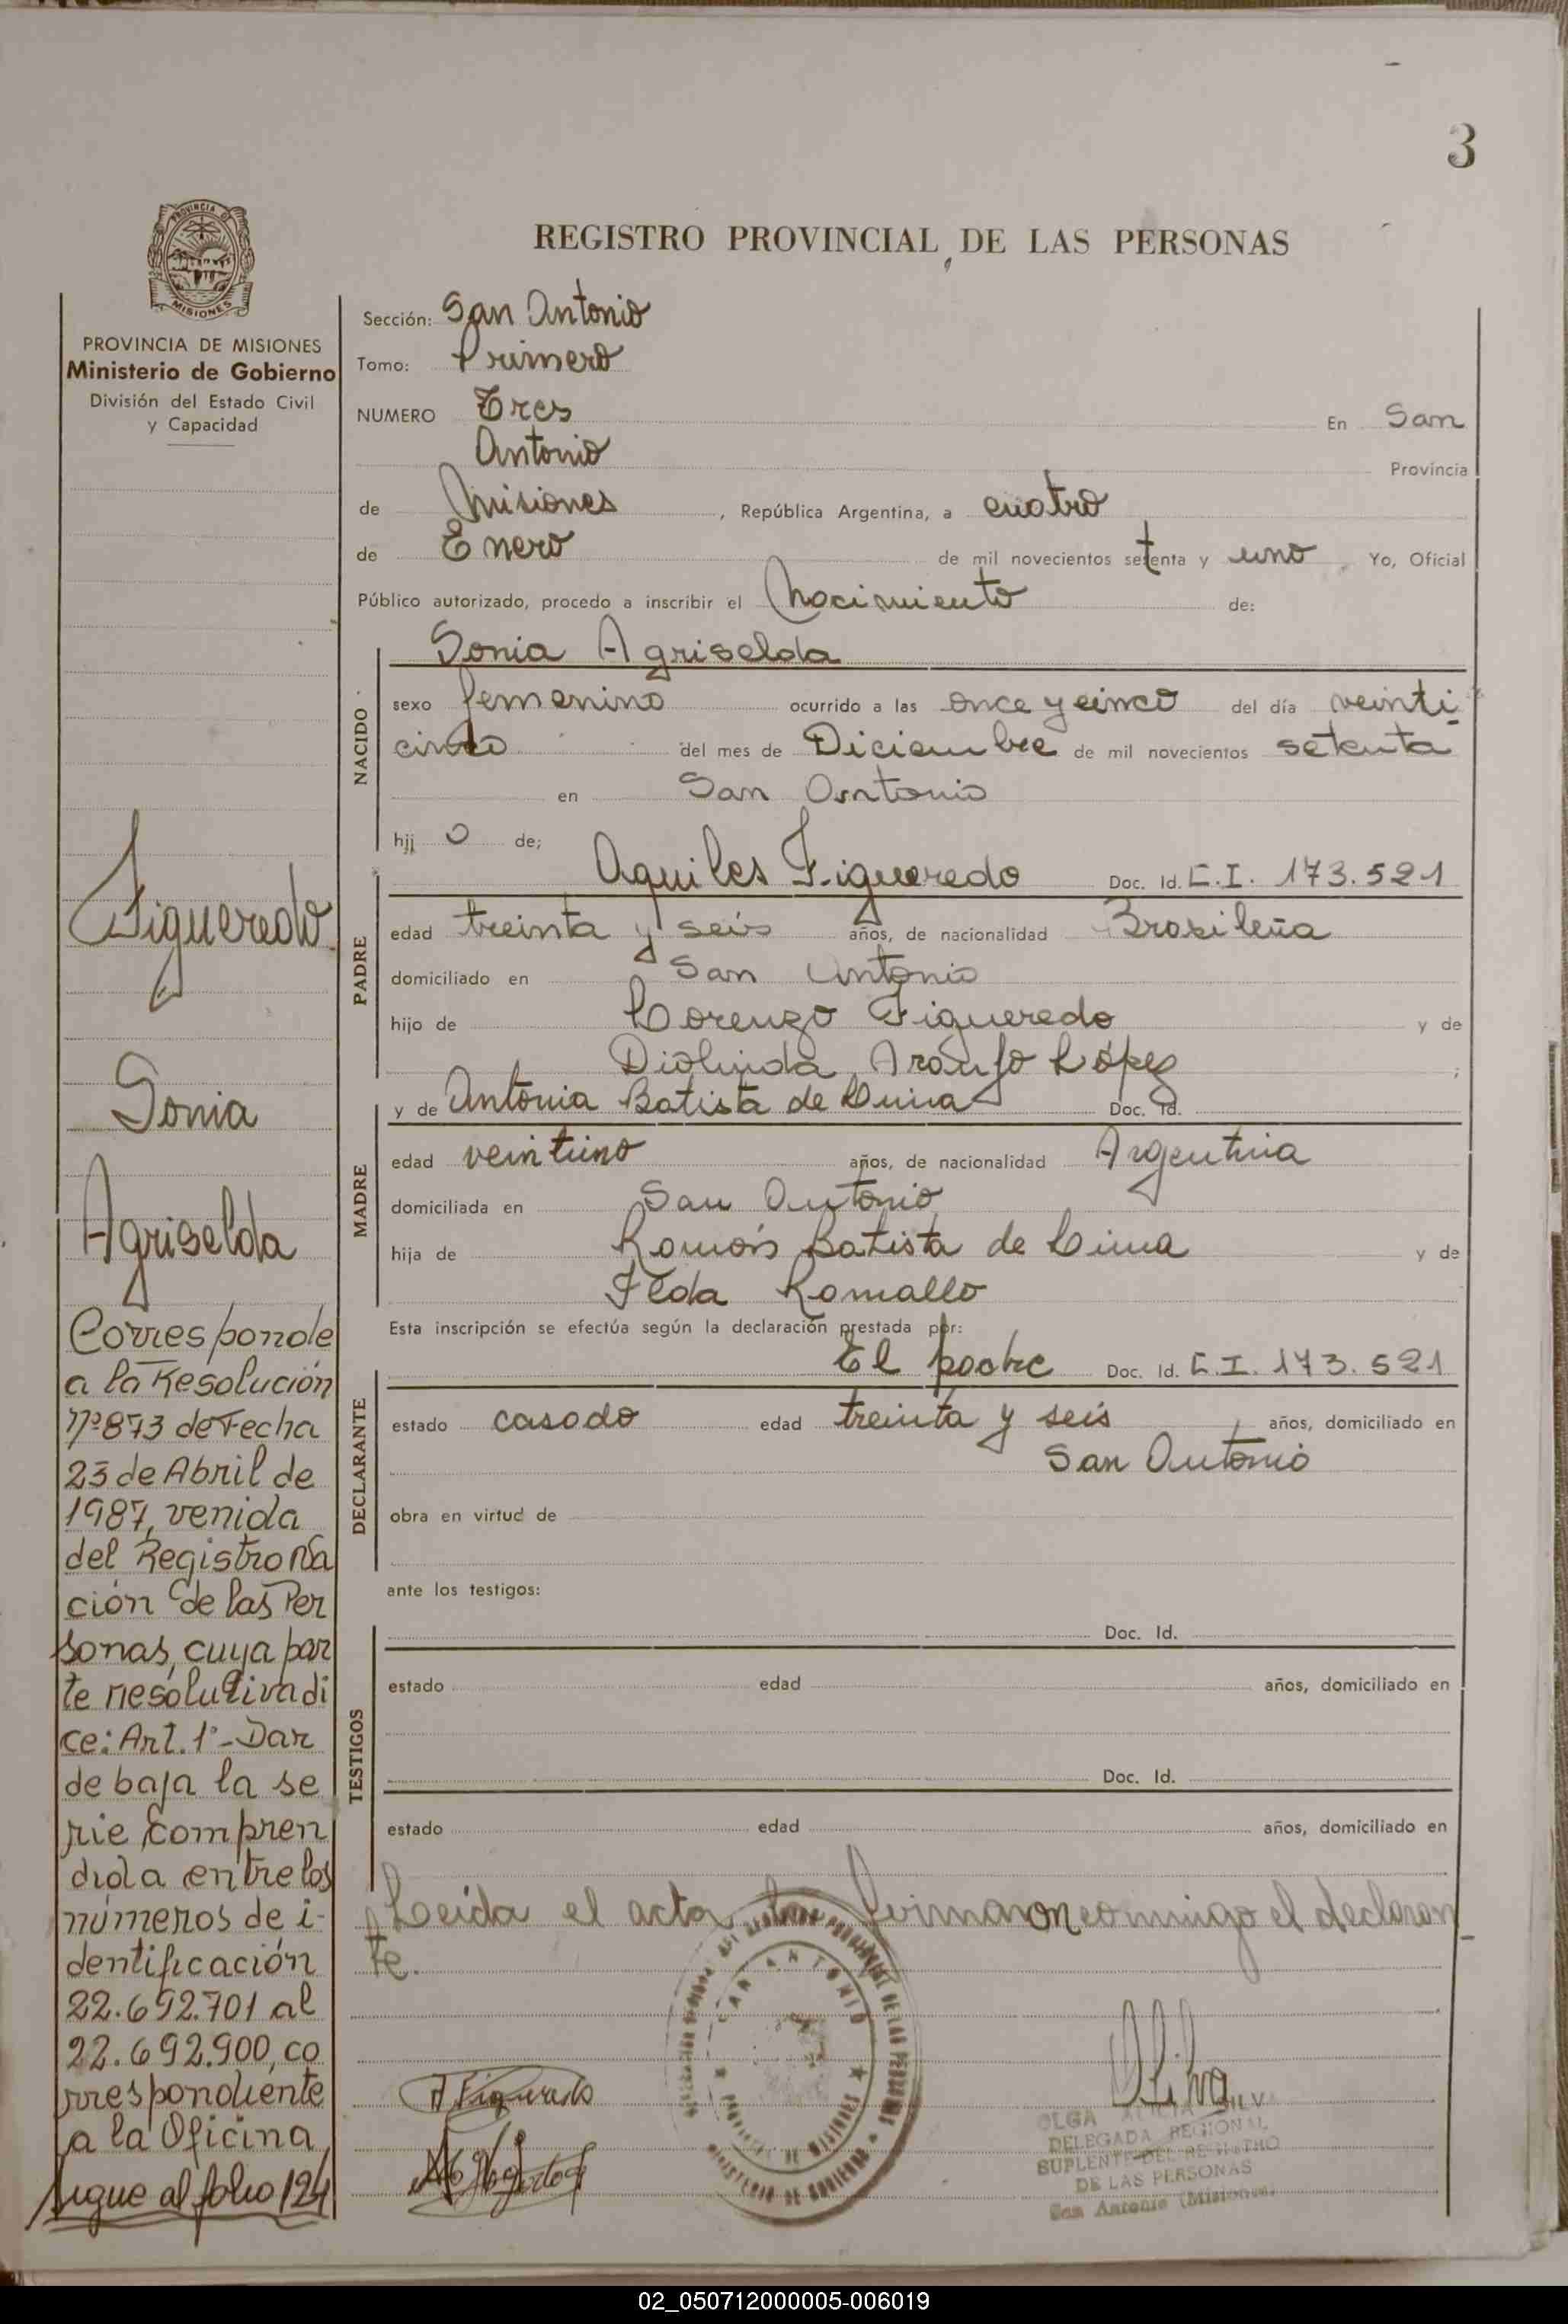 3
REGISTRO PROVINCIAL DE LAS PERSONAS
PROVINCIA DE
MISIONES
PROVINCIA DE MISIONES
Ministerio de Gobierno
División del Estado Civil
y Capacidad
Figueredo
Sonia
Agriselda
Corresponde
a la Resolución
Nº 873 de Fecha
23 de Abril de
1987, venida
del Registro Na
ción de las Per
sonas, cuya par
te resolutiva di
ce: Art. 1º- Dar
de baja la se
rie compren
dida entre los
números de i-
dentificación
22.692.701 al
22.692.900, co
rrespondiente
a la Oficina
sigue al folio 124
Sección: San Antonio
Tomo: Primero
NUMERO Tres En San
Antonio Provincia
de Misiones, República Argentina, a cuatro
de Enero de mil novecientos setenta y uno Yo, Oficial
Público autorizado, procedo a inscribir el Nacimiento de:
NACIDO
Sonia Agriselda
sexo femenino ocurrido a las once y cinco del día veinti
cinco del mes de Diciembre de mil novecientos setenta
en San Antonio
hij o de;
PADRE
Aquiles Figueredo Doc. Id. C.I. 173.521
edad treinta y seis años, de nacionalidad Brasileña
domiciliado en San Antonio
hijo de Lorenzo Figueredo y de
Araujo López ;
MADRE
y de Antonia Batista de Lima Doc. Id.
edad veintiuno años, de nacionalidad Argentina
domiciliada en San Antonio
hija de Ramón Batista de Lima y de
Ilda Romallo
Esta inscripción se efectúa según la declaración prestada por:
DECLARANTE
El padre Doc. Id. C.I. 173.521
estado casado edad treinta y seis años, domiciliado en
San Antonio
obra en virtud de
ante los testigos:
TESTIGOS
Doc. Id.
estado edad años, domiciliado en
Doc. Id.
estado edad años, domiciliado en
Leida el acta la firmaron conmigo el declaran
te.
SAN ANTONIO
PROVINCIA DE MISIONES
MINISTERIO DE GOBIERNO
A Figueredo
OLGA ALICIA SILVA
DELEGADA REGIONAL
SUPLENTE DEL REGISTRO
DE LAS PERSONAS
San Antonio (Misiones)
02_050712000005-006019